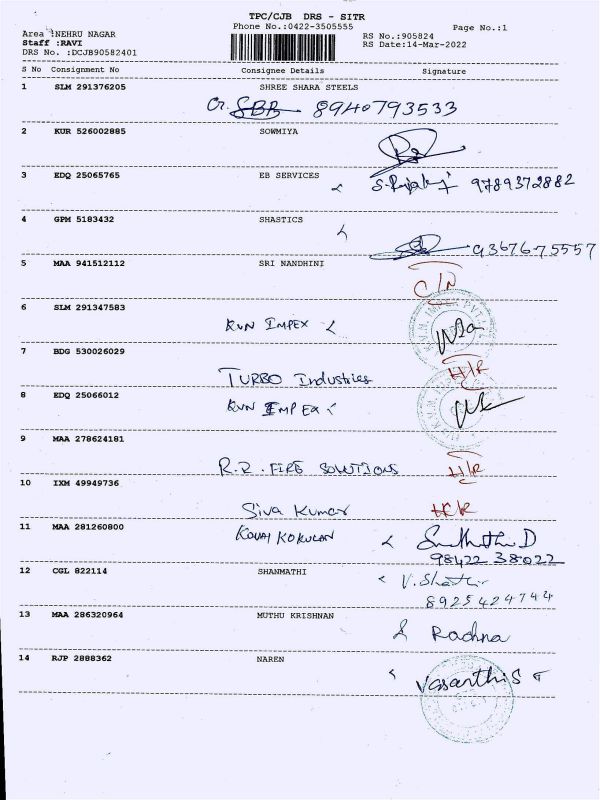 TPC/CJB DRS - SITR
Phone No.:0422-3505555
Page No.:1
Area :NEHRU NAGAR
RS No.:905824
Staff :RAVI
RS Date:14-Mar-2022
DRS No. :DCJB90582401
S No Consignment No Consignee Details Signature
1 SLM 291376205 SHREE SHARA STEELS
8940793533
2 KUR 526002885 SOWMIYA
3 EDQ 25065765 EB SERVICES
9789372882
4 GPM 5183432 SHASTICS
9367675557
5 MAA 941512112 SRI NANDHINI
C/N
6 SLM 291347583
KVN IMPEX
7 BDG 530026029
TURBO Industries H/R
8 EDQ 25066012
KVN IMPEX
9 MAA 278624181
R.R. FIRE SOLUTIONS H/R
10 IXM 49949736
Siva Kumar
11 MAA 281260800 KOVAI KOKULAN
98422 38022
12 CGL 822114 SHANMATHI
8925424744
13 MAA 286320964 MUTHU KRISHNAN
Rachna
14 RJP 2888362 NAREN
Vasanthi S